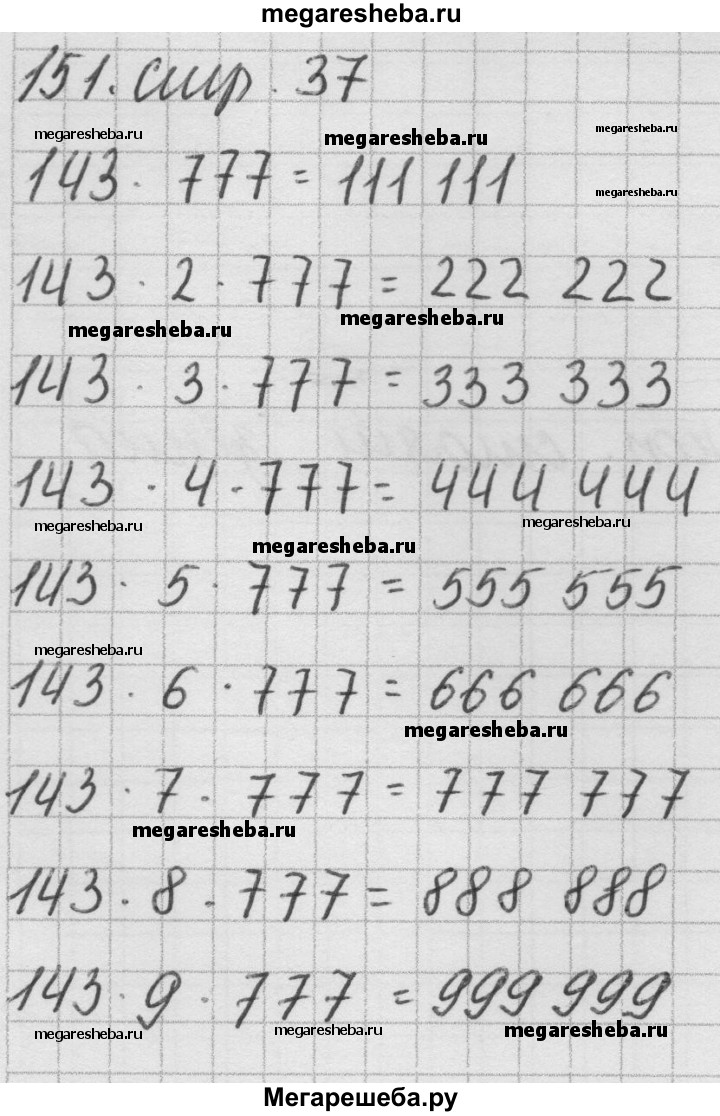 megaresheba.ru
151. стр. 37
megaresheba.ru megaresheba.ru megaresheba.ru
143 · 777 = 111 111
megaresheba.ru
143 · 2 · 777 = 222 222
megaresheba.ru megaresheba.ru
143 · 3 · 777 = 333 333
143 · 4 · 777 = 444 444
megaresheba.ru megaresheba.ru
megaresheba.ru
143 · 5 · 777 = 555 555
megaresheba.ru
143 · 6 · 777 = 666 666
megaresheba.ru
143 · 7 · 777 = 777 777
megaresheba.ru
143 · 8 · 777 = 888 888
143 · 9 · 777 = 999 999
megaresheba.ru megaresheba.ru megaresheba.ru
Мегарешеба.ру